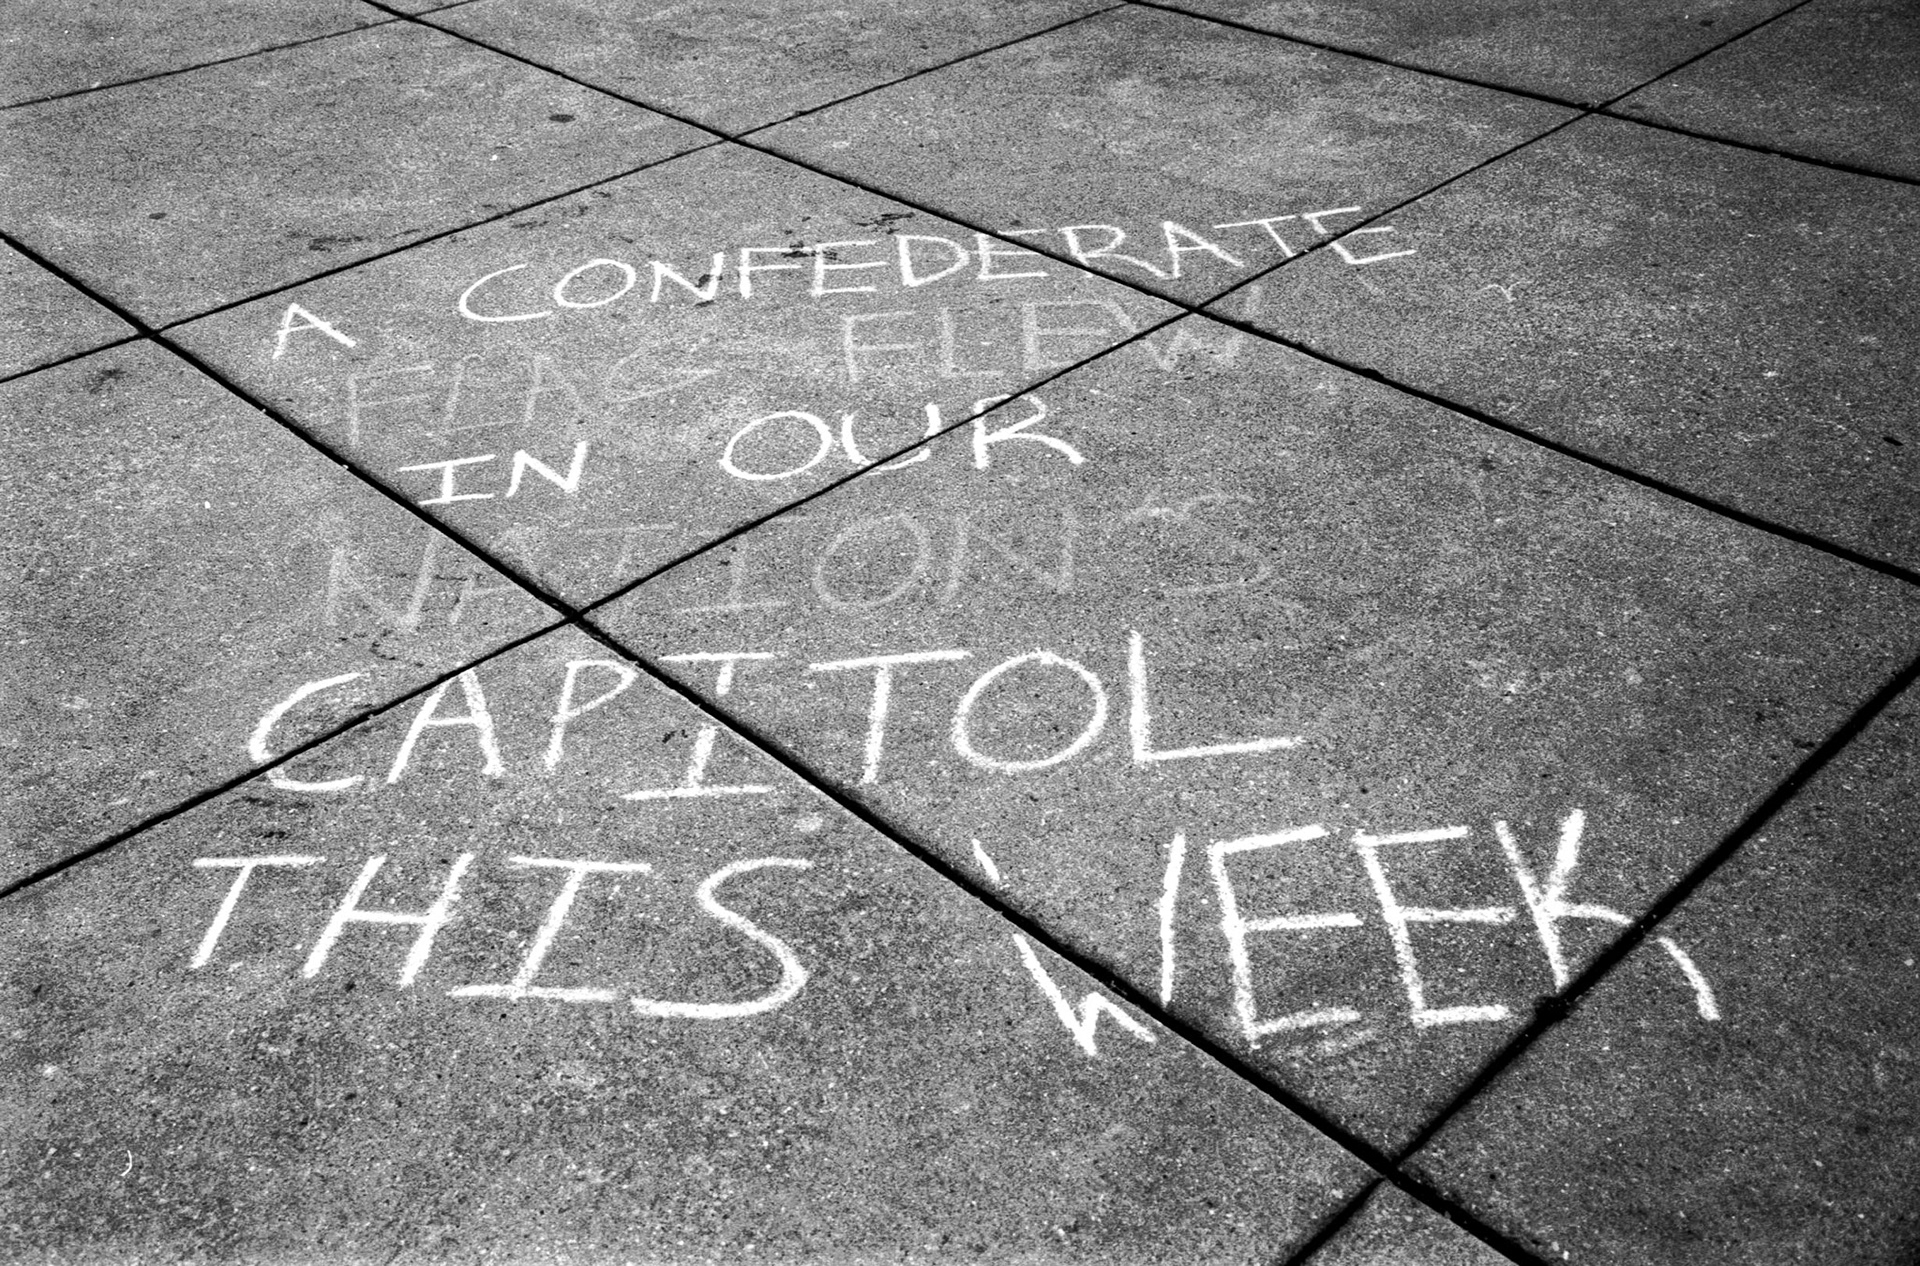 A CONFEDERATE
FLAG FLEW
IN OUR
NATIONS
CAPITOL
THIS WEEK